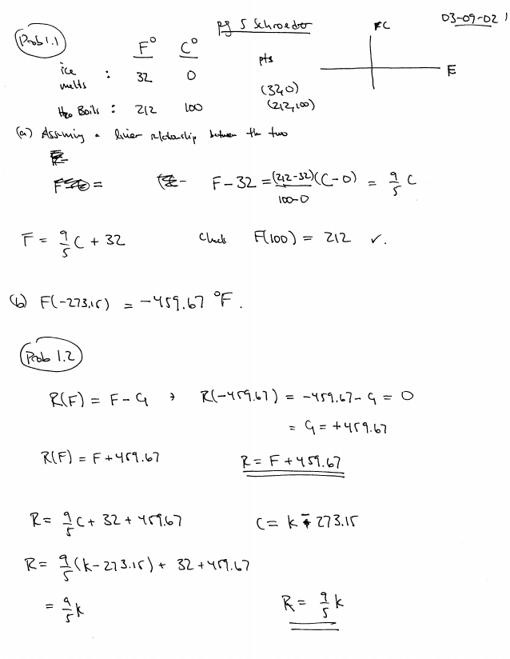 pg 5 Schroeder
03-09-02
Prob 1.1
F° C°
pts
C
F
ice melts : 32 0
(32,0)
H2O Boils : 212 100
(212,100)
(a) Assuming a linear relationship between the two
F-32 = (212-32)/(100-0) (C-0) = 9/5 C
F = 9/5 C + 32 Check F(100) = 212 ✓.
(b) F(-273.15) = -459.67 °F.
Prob 1.2
R(F) = F - C1 , R(-459.67) = -459.67 - C1 = 0
= C1 = +459.67
R(F) = F + 459.67 R = F + 459.67
R = 9/5 C + 32 + 459.67 C = K - 273.15
R = 9/5 (K-273.15) + 32 + 459.67
= 9/5 K R = 9/5 K